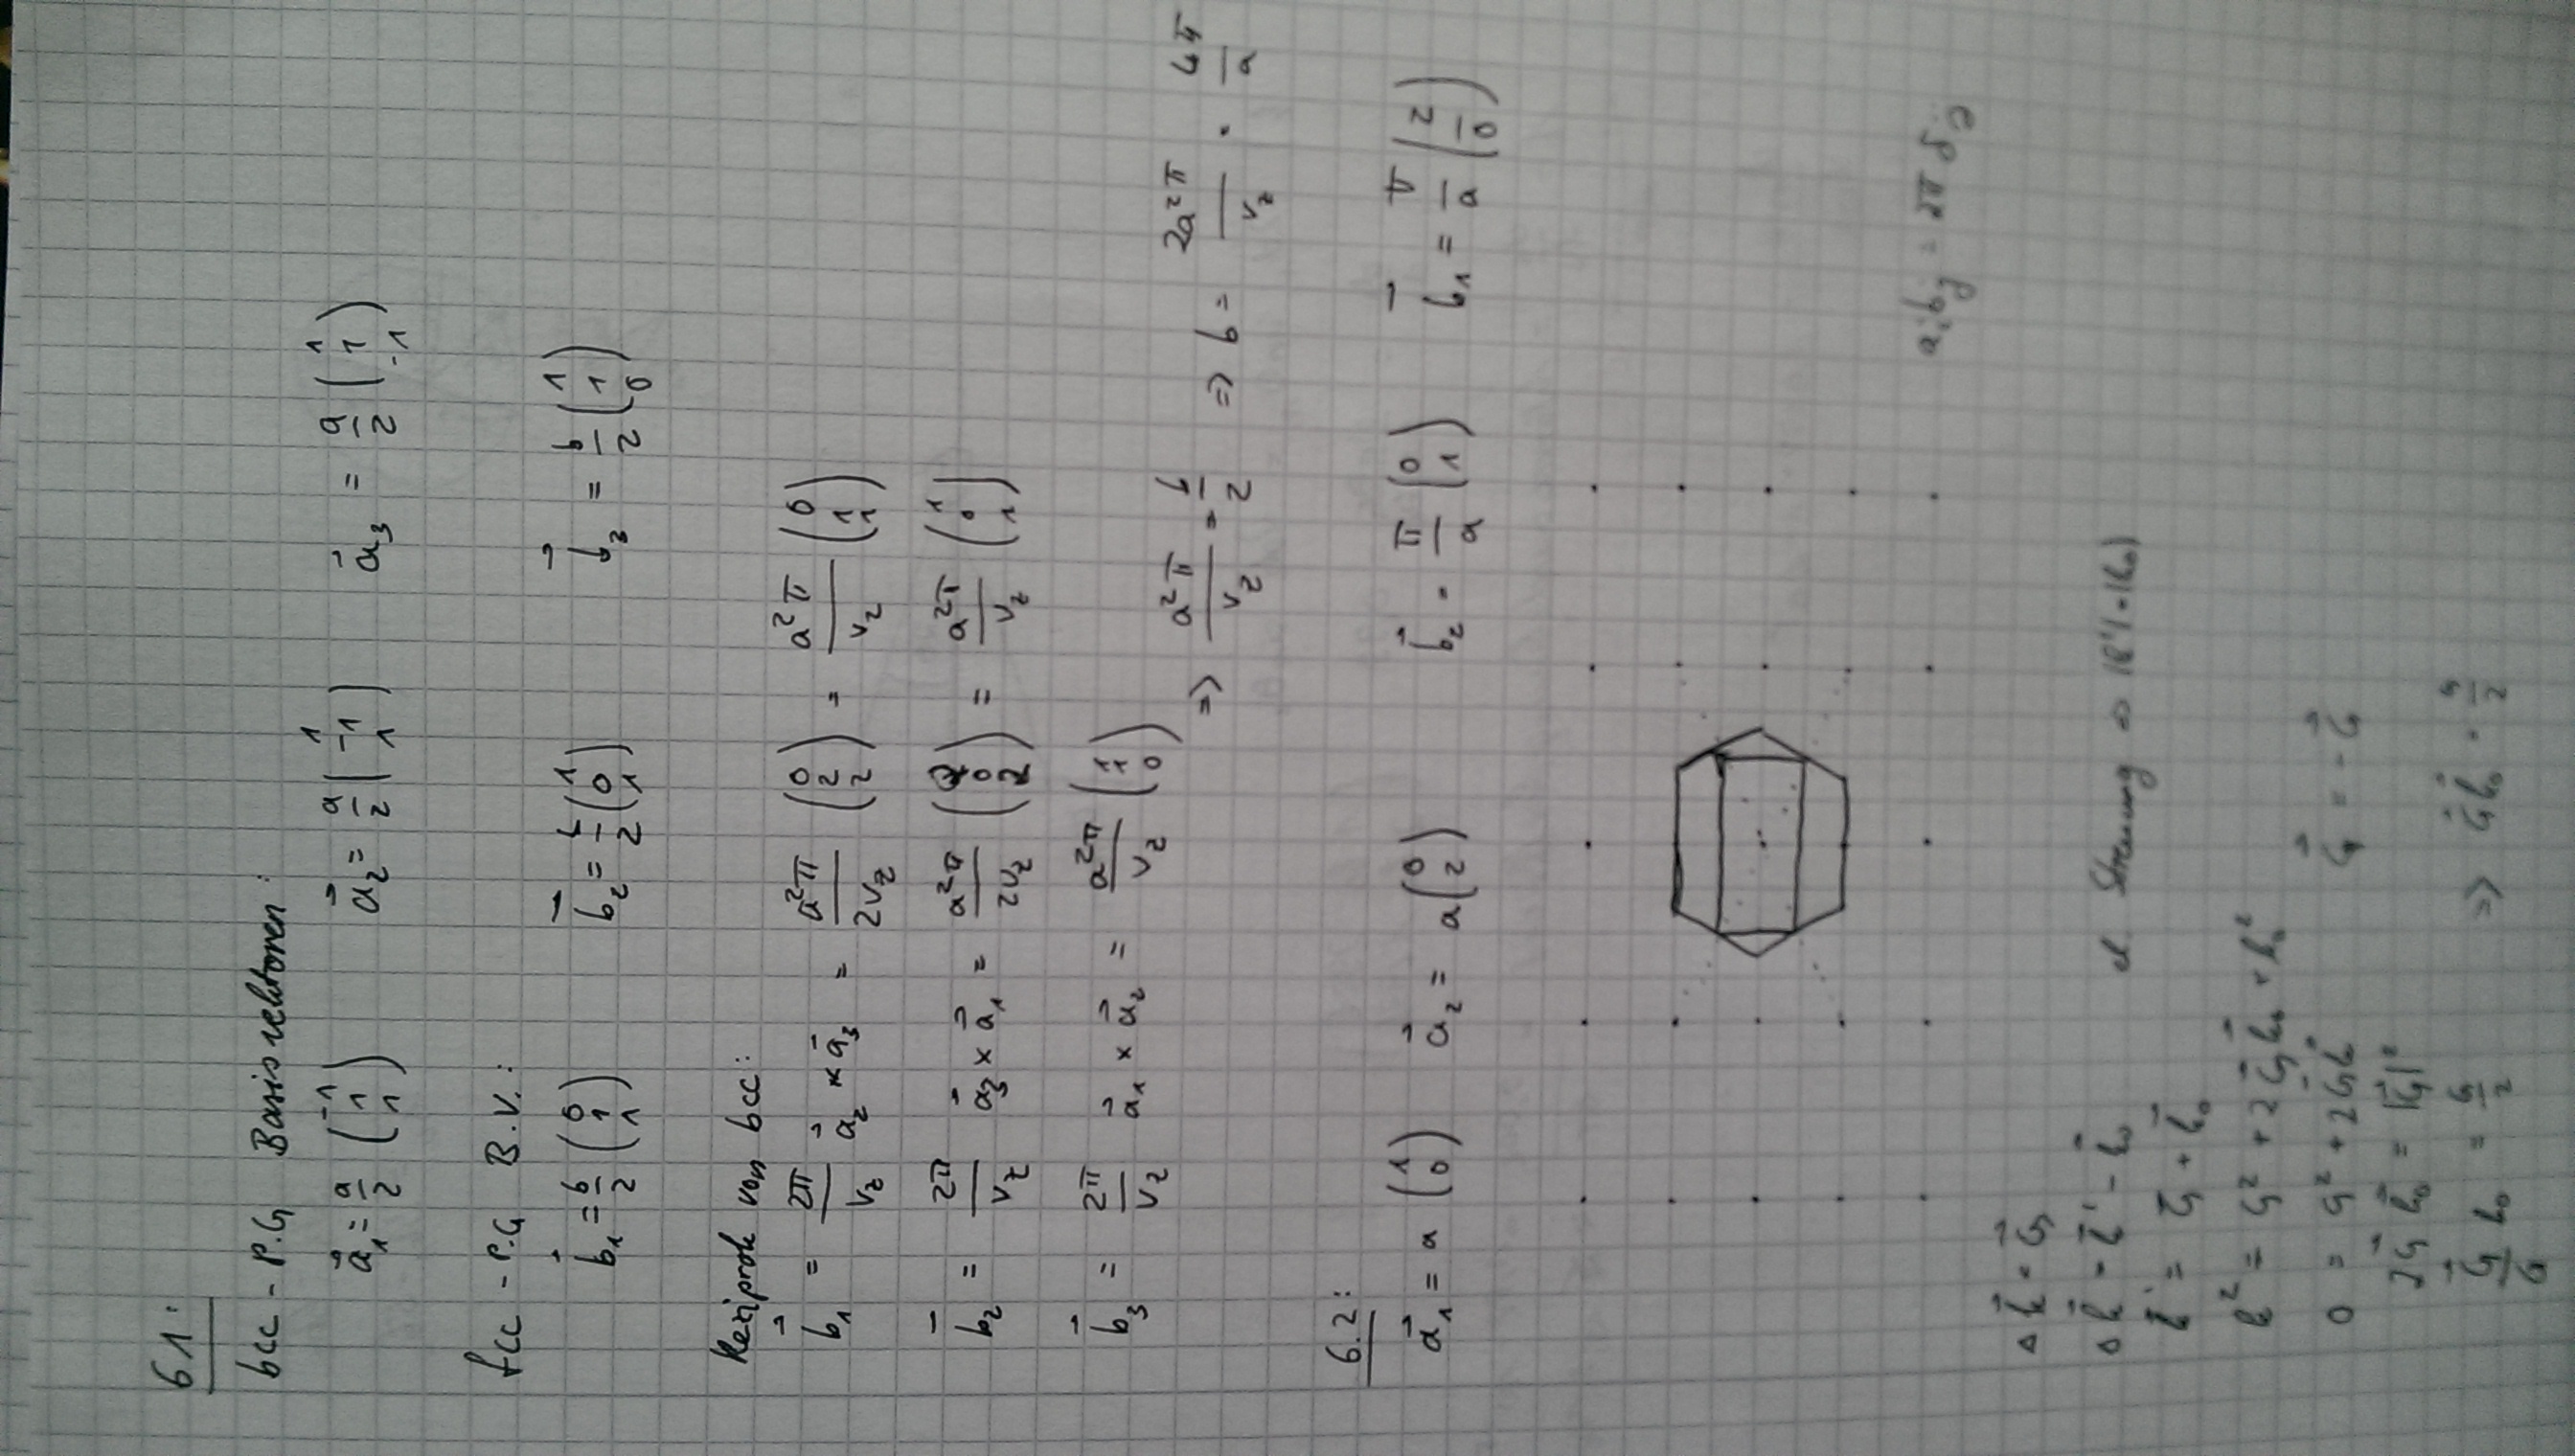 6.1:
bcc - P.G Basisvektoren:
a⃗₁ = a/2 (-1 1 1) a⃗₂ = a/2 (1 -1 1) a⃗₃ = a/2 (1 1 -1)
fcc - P.G B.V.:
b⃗₁ = b/2 (0 1 1) b⃗₂ = b/2 (1 0 1) b⃗₃ = b/2 (1 1 0)
Reziprok von bcc:
b⃗₁ = 2π/V_z a⃗₂ × a⃗₃ = a²π/2V_z (0 2 2) = a²π/V_z (0 1 1)
b⃗₂ = 2π/V_z a⃗₃ × a⃗₁ = a²π/2V_z (2 0 2) = a²π/V_z (1 0 1)
b⃗₃ = 2π/V_z a⃗₁ × a⃗₂ = a²π/V_z (1 1 0)
=> a²π/V_z = b/2 => b = 2a²π/V_z = 4π/a
6.2:
a⃗₁ = a (1 0) a⃗₂ = a (0 2) b⃗₂ = π/a (0 1) b⃗₁ = π/a (2 0)
aᵢbⱼ = 2π δᵢⱼ
Δk⃗ = G⃗
Δk⃗ = k⃗' - k⃗₀ el. Streuung => |k⃗'| = |k⃗₀|
k⃗' = G⃗ + k⃗₀
k² = G² + 2G⃗k⃗₀ + k₀²
0 = G² + 2G⃗k⃗ G⃗ = -G⃗
2G⃗k⃗₀ = |G⃗|²
G⃗/G k₀ = G/2 => G⃗k⃗₀ = G/2